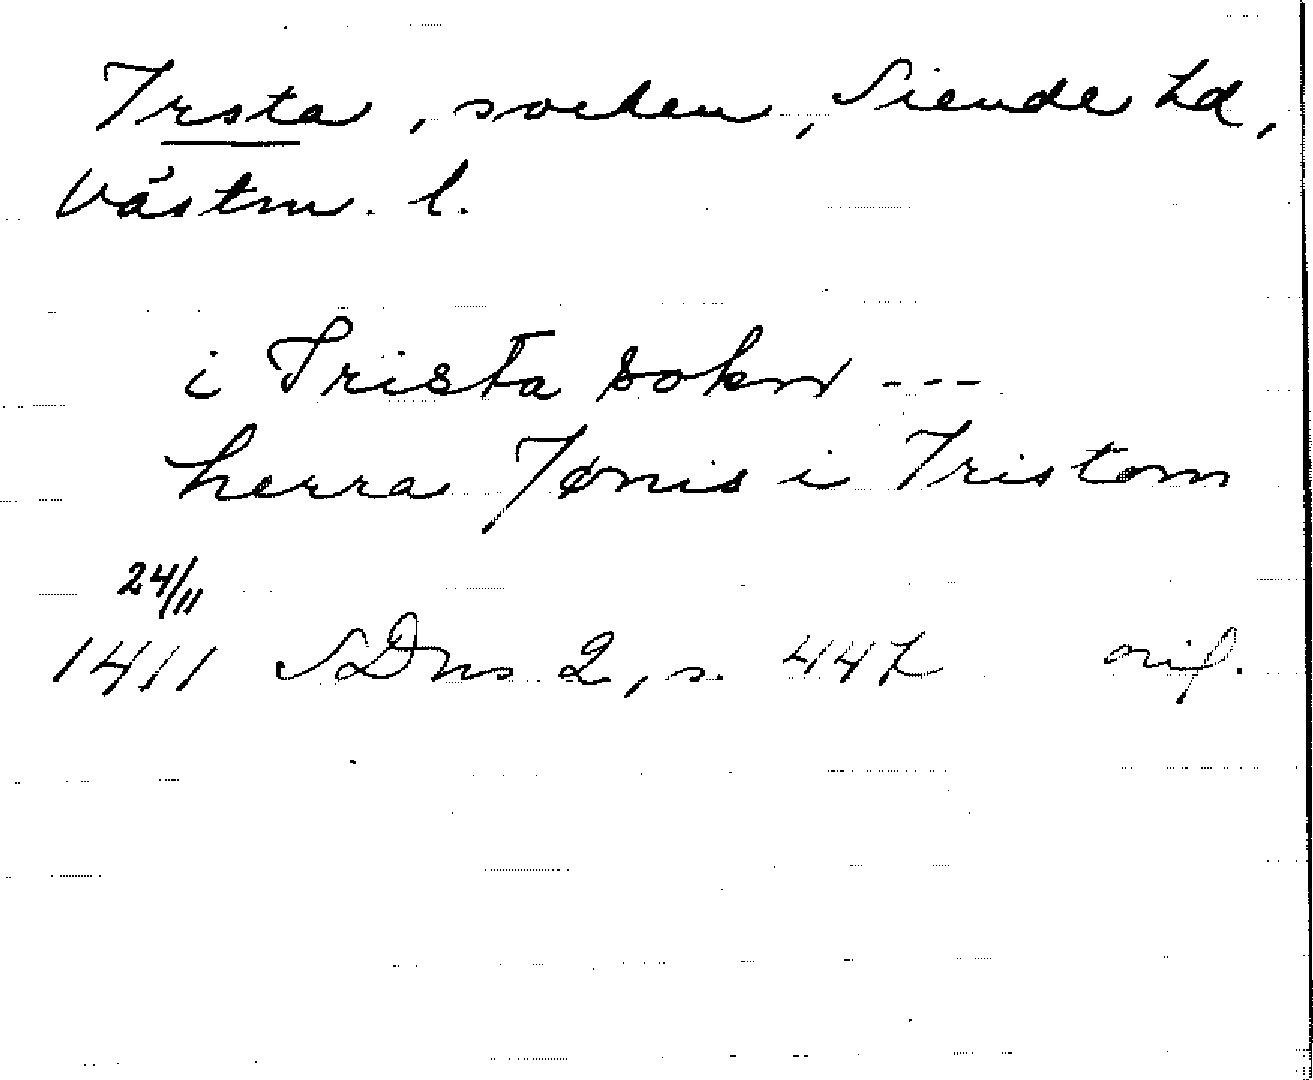 Irsta, socken, Siende hd,
Västm. l.
i Irista sokn ---
herra Jønis i Iristom
24/11
1411 SDns 2, s. 447 orig.